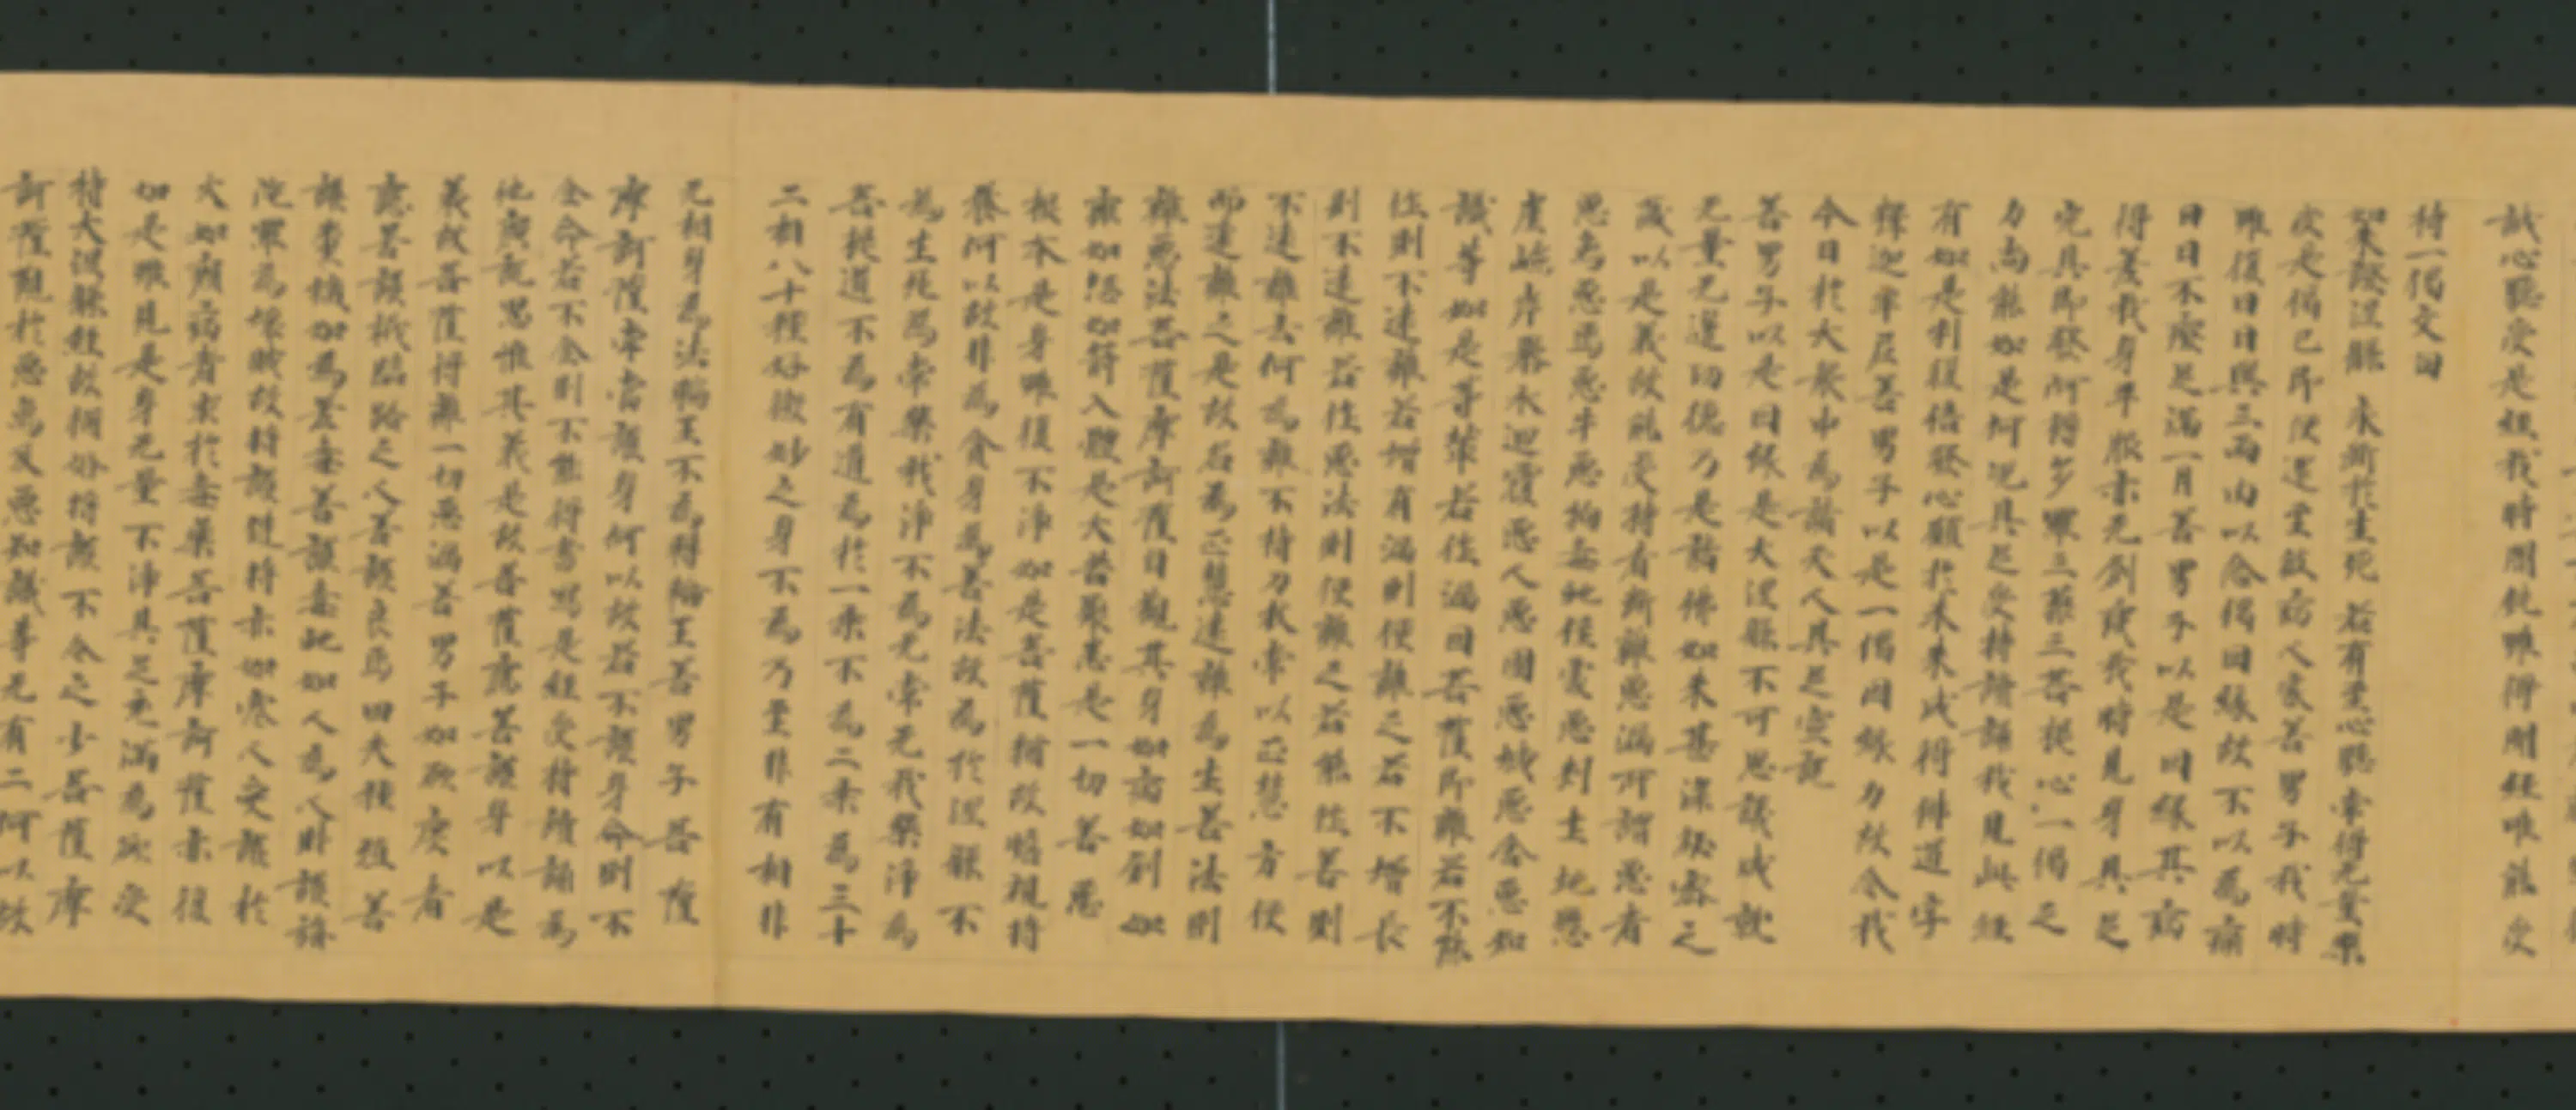 誠心聽受是經我時闇鈍雖得聞經唯能受
持一偈文曰
如來證涅槃 永斷於生死 若有至心聽 常得无量樂
受是偈已即便還至彼病人家善男子我時
雖復日日與三兩肉以念偈因緣故不以為痛
日日不廢足滿一月善男子以是因緣其病
得差我身平服亦无創痍我時見身具足
完具即發阿耨多羅三藐三菩提心一偈之
力尚能如是何況具足受持讀誦我見此經
有如是利復倍發心願於未來成得佛道字
釋迦牟尼善男子以是一偈因緣力故令我
今日於大衆中為諸天人具足宣說
善男子以是因緣是大涅槃不可思議成就
无量无邊功德乃是諸佛如來甚深秘密之
藏以是義故能受持者斷離惡漏所謂惡者
惡象惡馬惡牛惡狗毒蛇住處惡刺土地懸
崖嶮岸暴水迴澓惡人惡國惡城惡舍惡知
識等如是等輩若住漏因菩薩即離若不能
住則不遠離若增有漏則便離之若不增長
則不遠離若住惡法則便離之若能住善則
不遠離云何為離不持刀杖常以正慧方便
而遠離之是故名為正慧遠離為生善法則
離惡法菩薩摩訶薩自觀其身如病如創如
癰如怨如箭入體是大苦聚悉是一切善惡
根本是身雖復不淨如是菩薩猶故瞻視將
養何以故非為貪身為善法故為於涅槃不
為生死為常樂我淨不為无常无我樂淨為
菩提道不為有道為於一乘不為三乘為三十
二相八十種好微妙之身不為乃至非有相非
无相身為法輪王不為轉輪王善男子菩薩
摩訶薩常當護身何以故若不護身命則不
全命若不全則不能得書寫是經受持讀誦為
他廣說思惟其義是故菩薩應善護身以是
義故菩薩得離一切惡漏善男子如欲度者
應善護栰臨路之人善護良馬田夫種殖善
護糞穢如為差毒善護毒蛇如人為財護旃
陀羅為壞賊故將護健將亦如寒人愛護於
火如癩病者求於毒藥菩薩摩訶薩亦復
如是雖見是身无量不淨具足充滿為欲受
持大涅槃經故猶好將護不令乏少菩薩摩
訶薩觀於惡象及惡知識等无有二何以故